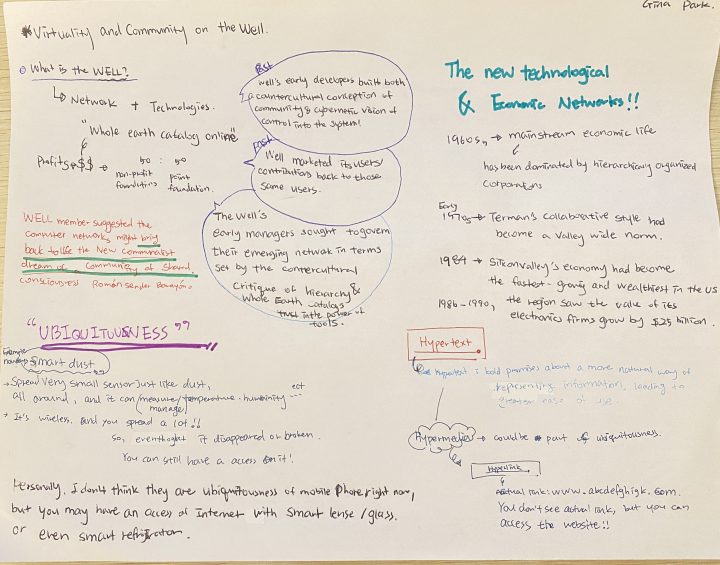 Gina Park.
*Virtuality and Community on the Well.
What is the WELL?
↳ Network + Technologies.
"Whole earth catalog online"
Profits $$ → 50 : 50
non-profit point
foundations foundation.
WELL member suggested the
computer networks might bring
back to life the New Communalist
dream of a Community of Shared
consciousness Ramón Sender
Fact
Well's early developers built both
a countercultural conception of
community & cybernetic vision of
control into the system!
Fact
Well marketed its users'
contributions back to those
same users.
The Well's
early managers sought to govern
their emerging network in terms
set by the contercultural
Critique of hierarchy &
Whole Earth catalogs
trust in the power of
tools.
The new technological
& Economic Networks!!
1960s, → mainstream economic life
has been dominated by hierarchicaly organized
corporations
Early
1970s → Terman's collaborative style had
become a Valley wide norm.
1984 → Siliconvalley's economy had become
the fastest-growing and wealthiest in the US
1986-1990, the region saw the value of its
electronics firms grow by $25 billion.
"UBIQUITUSNESS"
Example
nowdays
Smart dust
→ Spread very small sensor just like dust,
all around, and it can (measure/ temperature. humbinity ect ---
manage)
→ It's wireless, and you spread a lot!!
So, eventhoght it disappeared or broken.
You can still have a access on it!
Personally, I don't think they are ubiquitousness of mobile phone right now,
but you may have an access of Internet with smart lense/glass.
or even smart refrigirator.
Hypertext.
hypertext i bold promises about a more natural way of
representing information, leading to
greater ease of use.
Hypermedia → could be part of ubiquitousness.
Hyperlink
actual link: www.abcdefghigk.com.
You don't see actual link, but you can
access the website!!